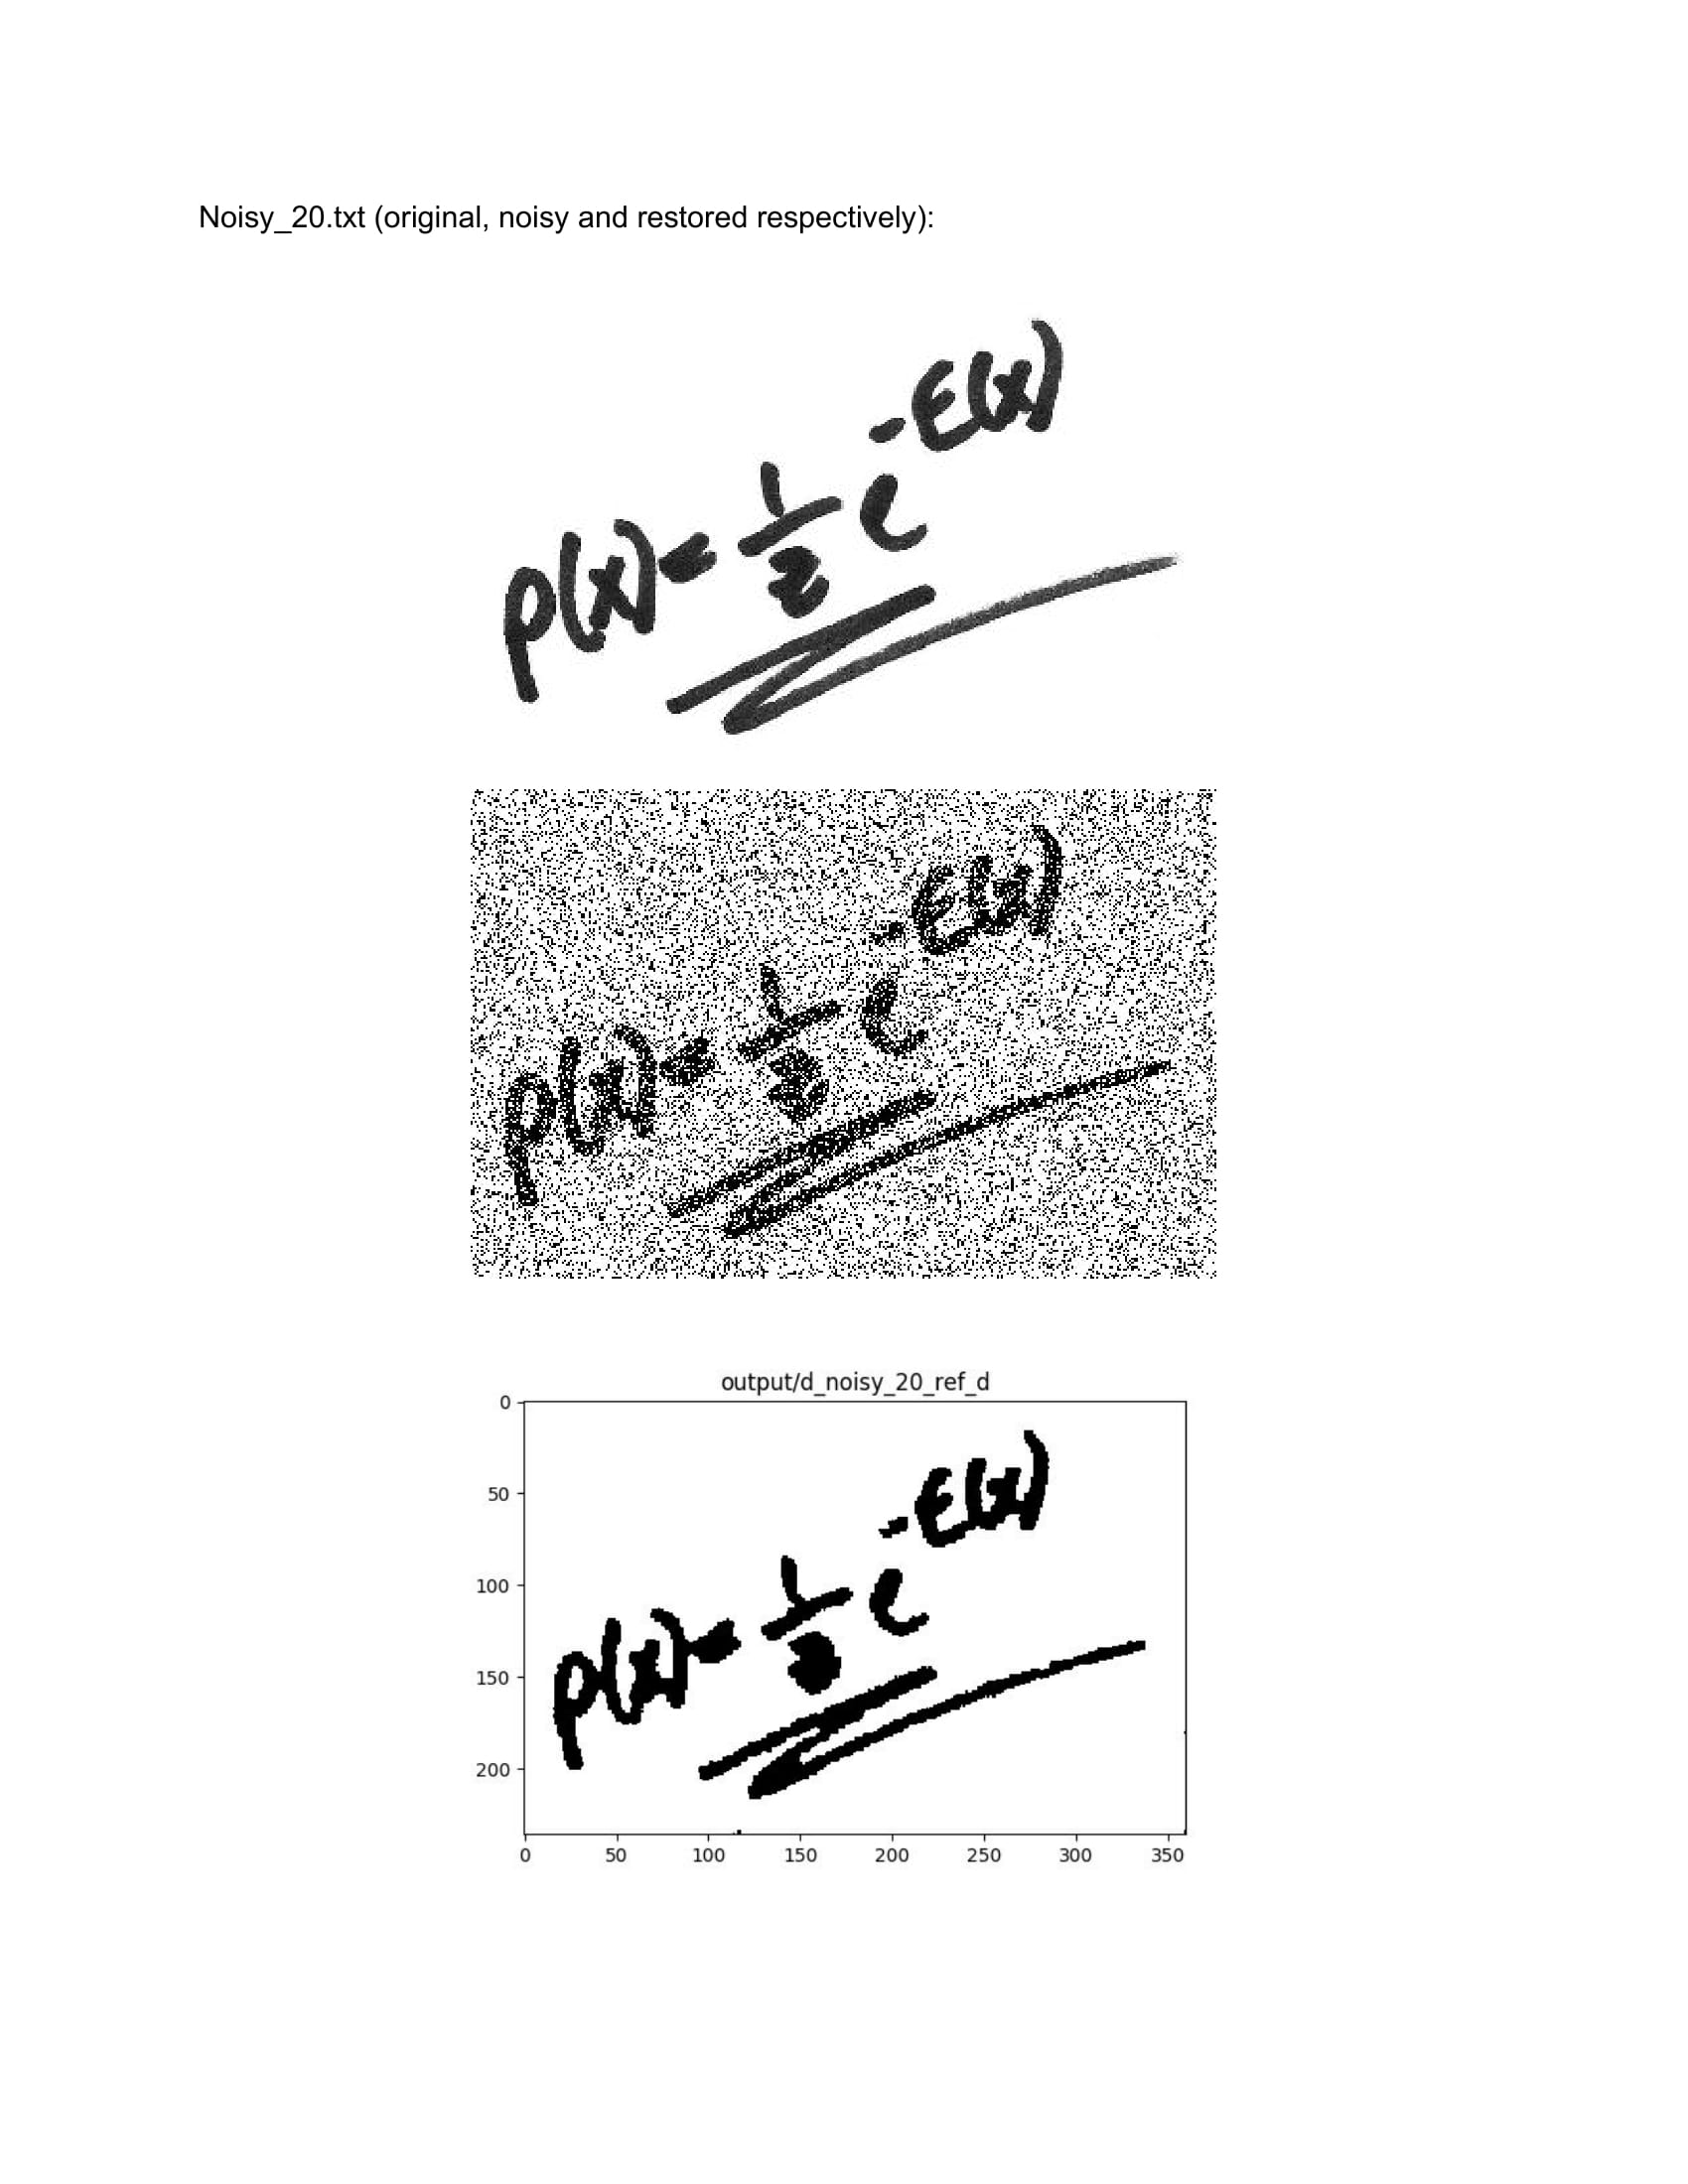 Noisy_20.txt (original, noisy and restored respectively):
p(x) = 1/z e^-E(x)
p(x) = 1/z e^-E(x)
output/d_noisy_20_ref_d
0
50
100
150
200
p(x) = 1/z e^-E(x)
0 50 100 150 200 250 300 350